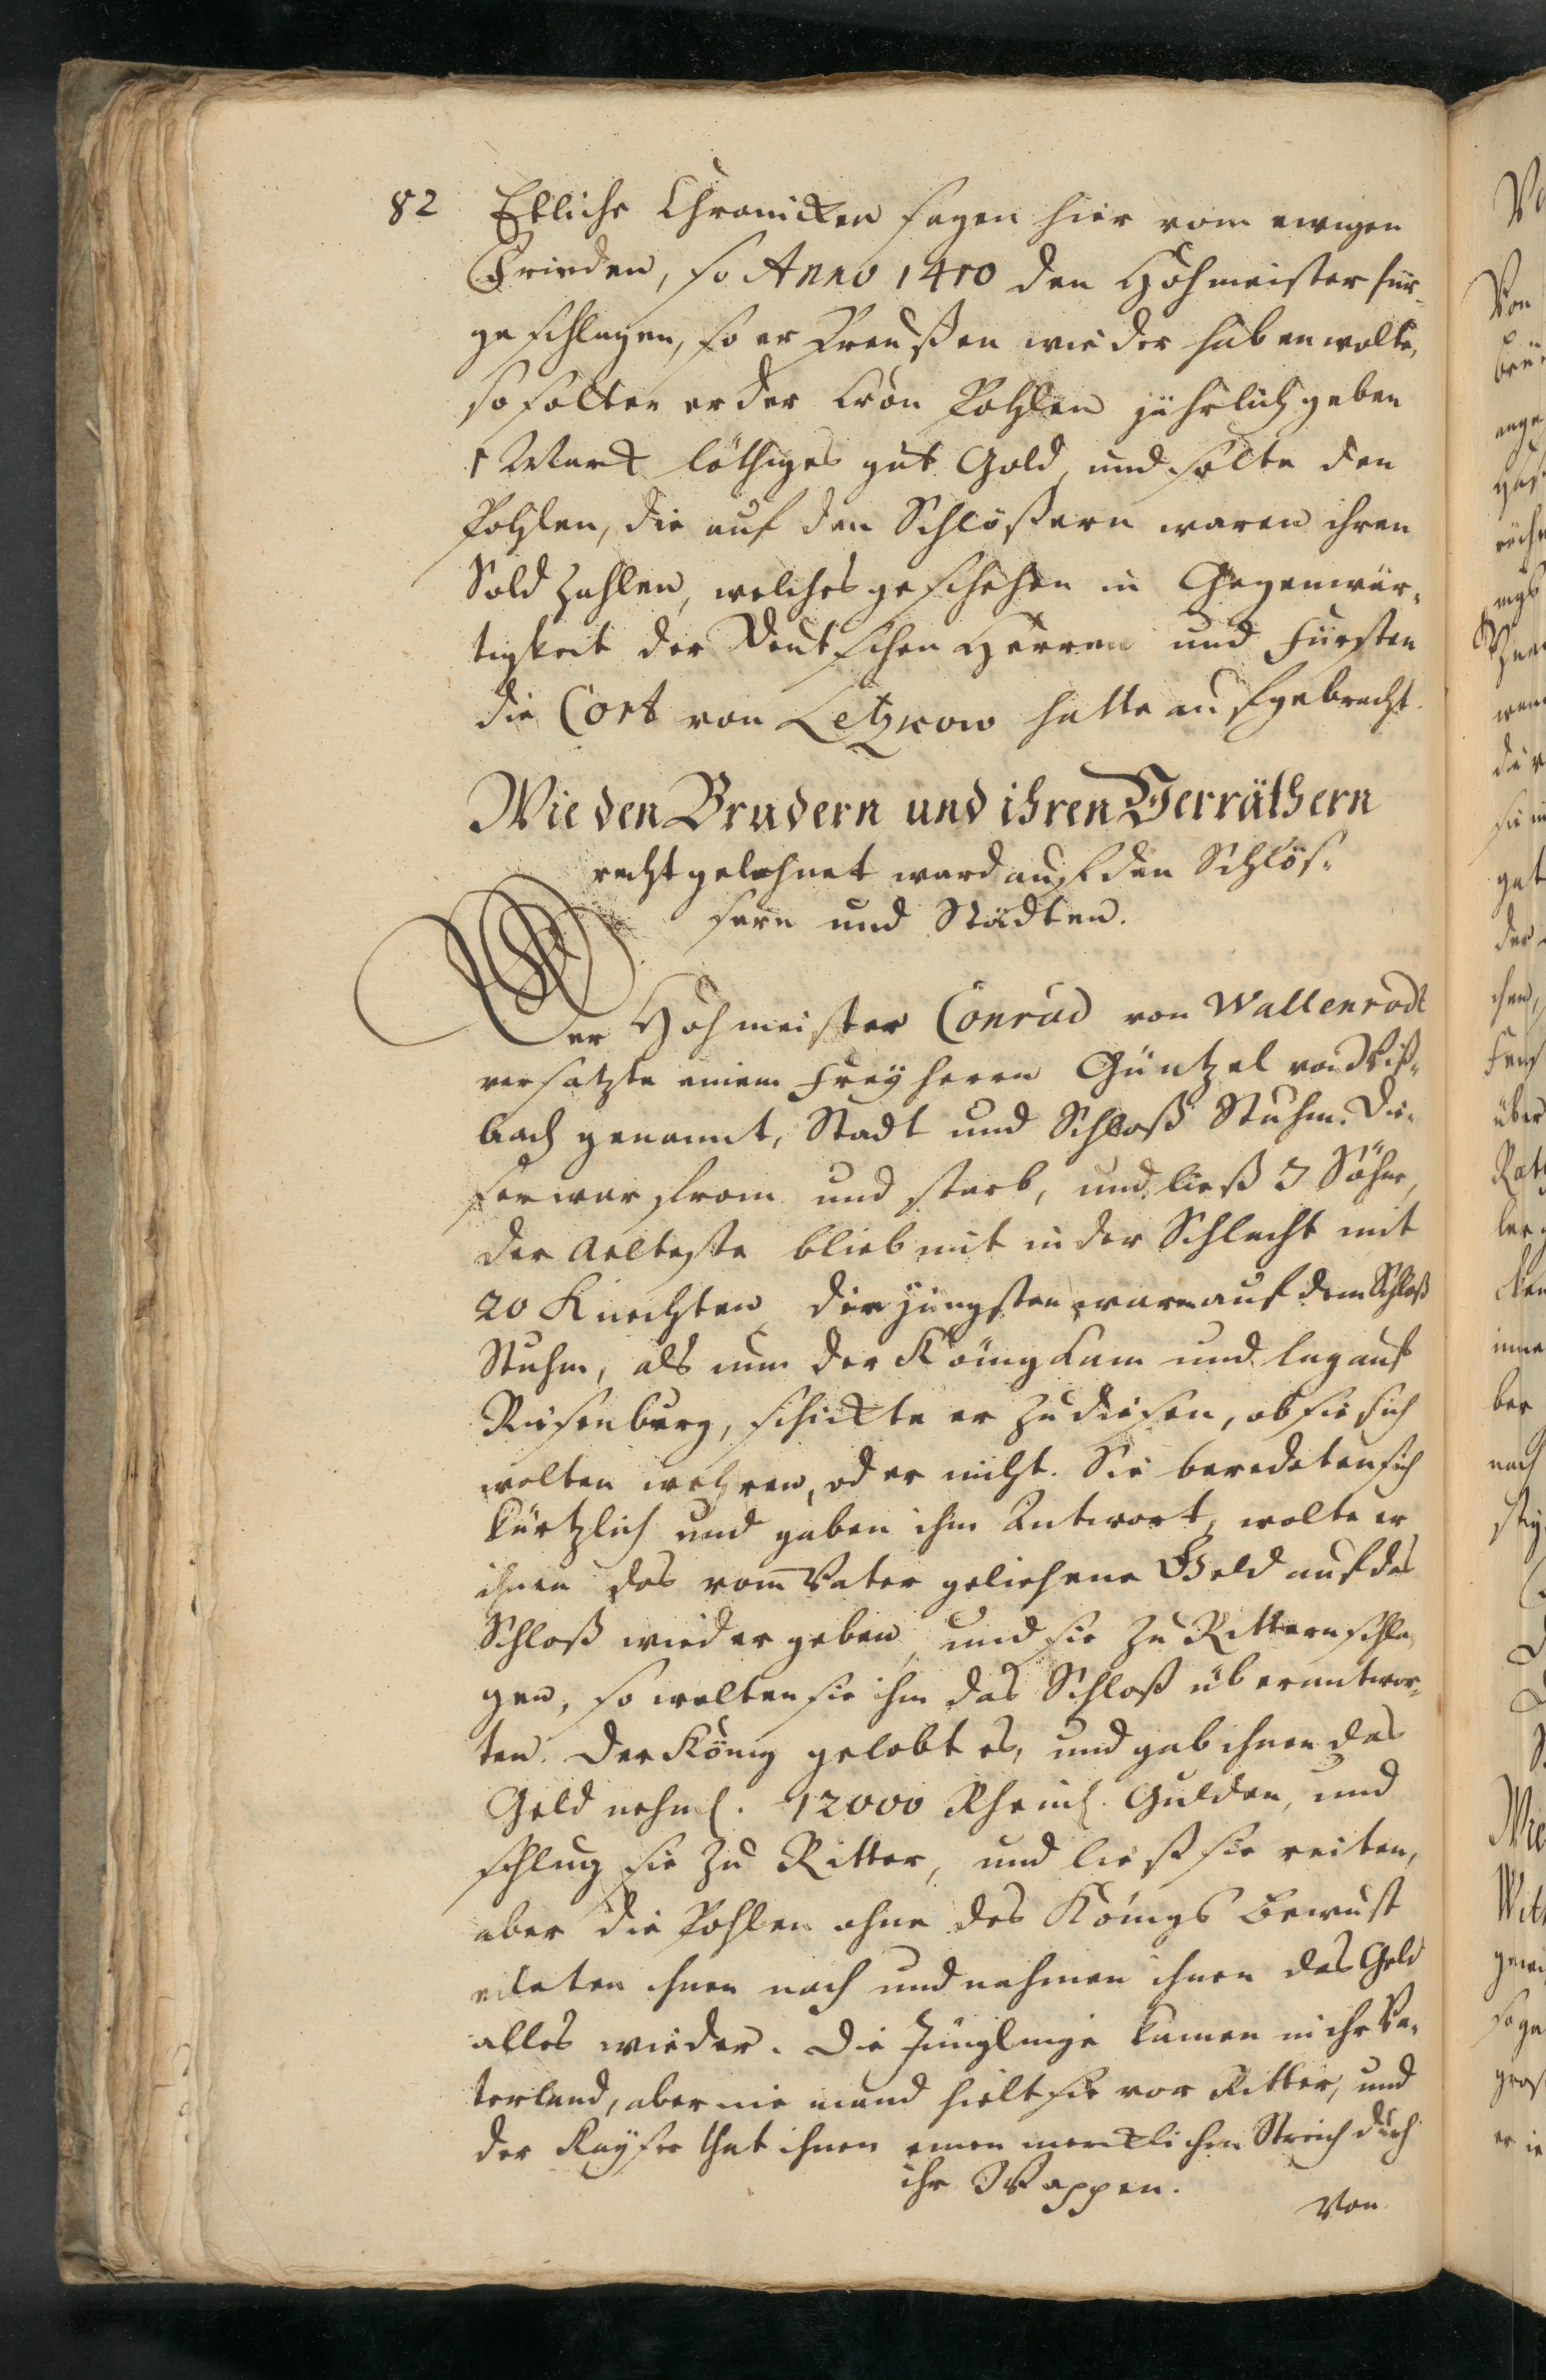 82 Etliche Chronicken sagen hier vom ewigen
Frieden, so Anno 1410 den Hohmeister für-
geschlagen, so er Preußen wieder haben wolte,
so solten er der Cron Pohlen jährlich geben
1 Marck löthiges gut Gold, und solte den
Pohlen, die auf den Schlößern waren ihren
Sold zahlen, welches geschehen in Gegenwär-
tigkeit der Deutschen Herren und Fürsten
die Cort von Letzkow hatte aufgebracht.
Wie den Brudern und ihren Verräthern
recht gelohnet ward auf den Schlös-
sern und Städten.
Der Hohmeister Conrad von Wallenrodt
versatzte einem Freyherrn Güntzel von
bach genannt, Stadt und Schloß Stuhm. Die-
ser war from und starb, und ließ 3 Söhne,
der Aelteste blieb mit in der Schlacht mit
20 Knechten, die jüngsten waren auf dem Schloß
Stuhm, als nun der König kam und lag auf
Riesenburg, schickte er zu diesen, ob sie sich
wolten wehren, oder nicht. Sie beredeten sich
kürtzlich und gaben ihm Antwort, wolte er
ihnen das vom Vater geliehene Geld auf das
Schloß wieder geben, und sie zu Rittern schla-
gen, so wolten sie ihm das Schloß überantwor-
ten. Der König gelobt es, und gab ihnen das
Geld nehml. 12000 Rheinl. Gulden, und
schlug sie zu Ritter, und ließ sie reiten,
aber die Pohlen ohne des Königs Bewust
eileten ihnen nach und nahmen ihnen das Geld
alles wieder. Die Jünglinge kamen in ihr Va-
terland, aber niemand hielt sie vor Ritter, und
der Kayser that ihnen einen mercklichen Streich durch
ihr Wappen.
Von